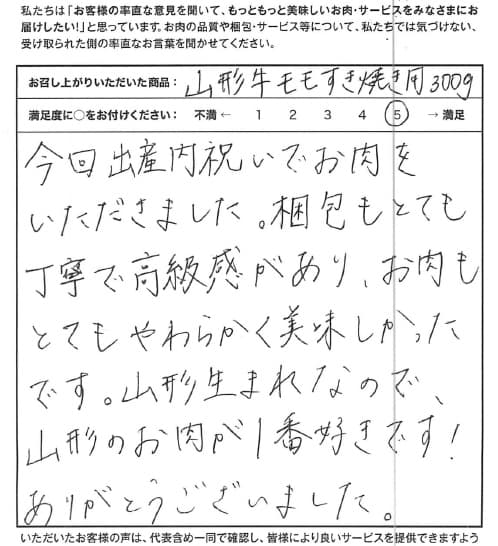 私たちは「お客様の率直な意見を聞いて、もっともっと美味しいお肉・サービスをみなさまにお
届けしたい!」と思っています。お肉の品質や梱包・サービス等について、私たちでは気づけない、
受け取られた側の率直なお言葉を聞かせてください。
お召し上がりいただいた商品: 山形牛モモすき焼き用300g
満足度に○をお付けください: 不満 ← 1 2 3 4 5 → 満足
今回出産内祝いでお肉を
いただきました。梱包もとても
丁寧で高級感があり、お肉も
とてもやわらかく美味しかった
です。山形生まれなので、
山形のお肉が1番好きです!
ありがとうございました。
いただいたお客様の声は、代表含め一同で確認し、皆様により良いサービスを提供できますよう